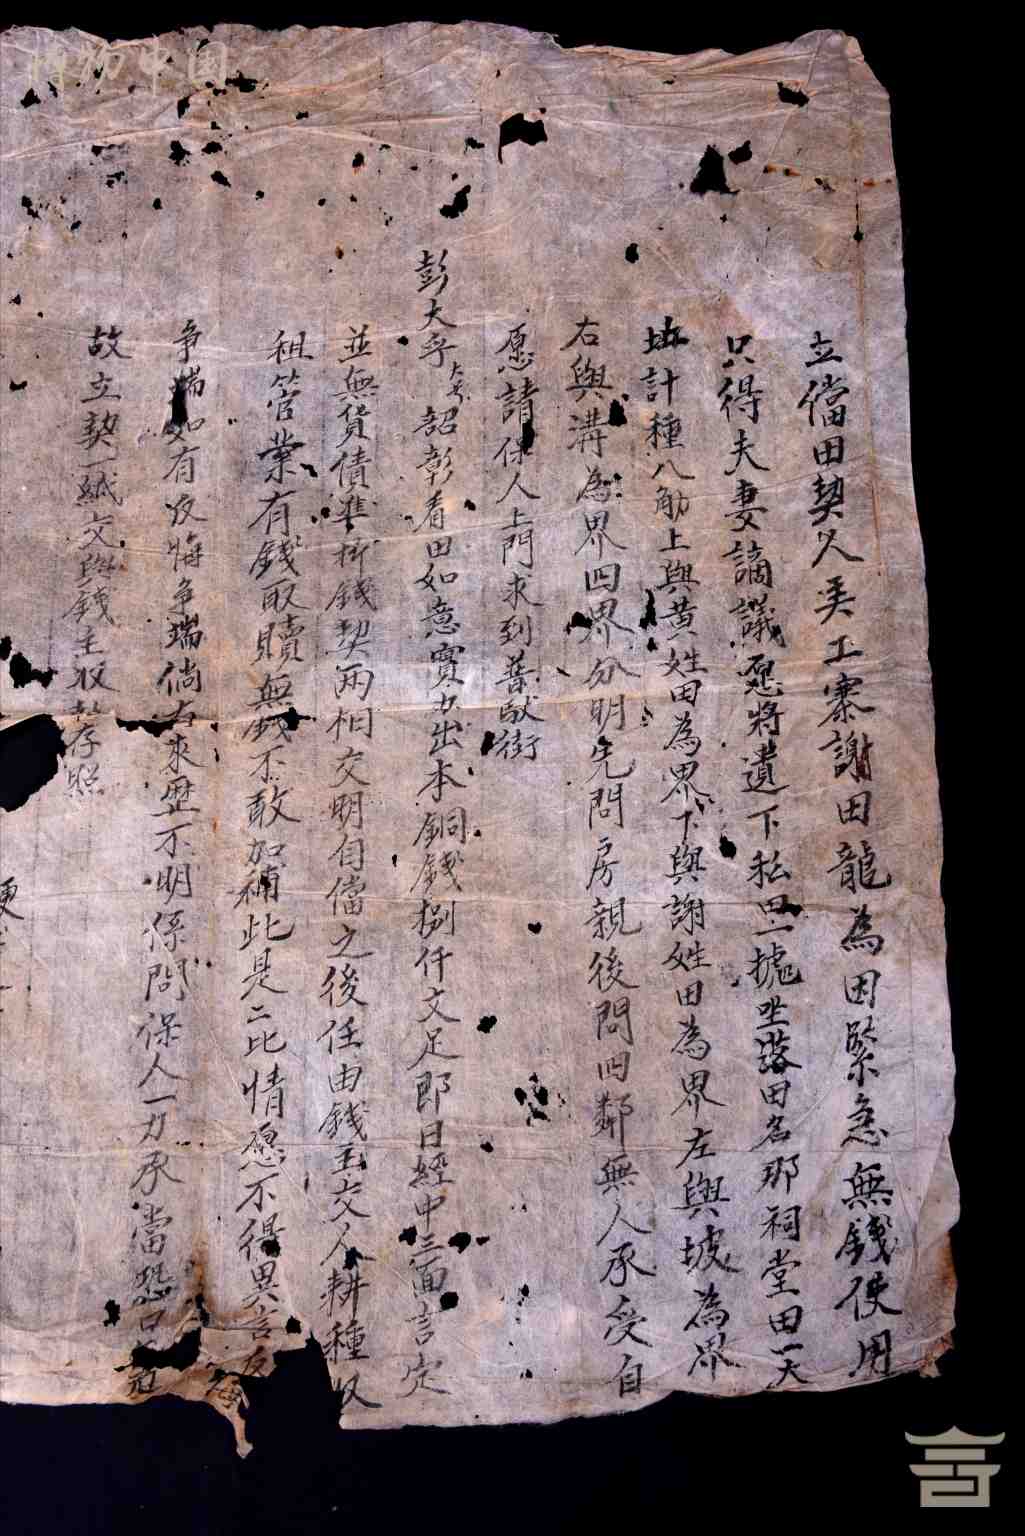 立儅田契人美工寨謝田龍為因緊急無錢使用
只得夫妻謫議愿將遺下私田一摅坐落田名那祠堂田一大
坵計種八觔上與黄姓田為界下與謝姓田為界左與坡為界
右與溝為界四界分明先問房親後問四鄰無人承受自
愿請保人上門求到普猷街
彭大孚 大号 韶彰看田如意實力出本銅錢捌仟文足即日經中三面言定
並無貨債準折錢契兩相交明自儅之後任由錢主交人耕種收
租管業有錢取贖無錢不敢加補此是二比情愿不得異言反悔
争端如有反悔争端倘有來歷不明係問保人一力承當恐口無
故立契一紙交與錢主收執存照
博物中国